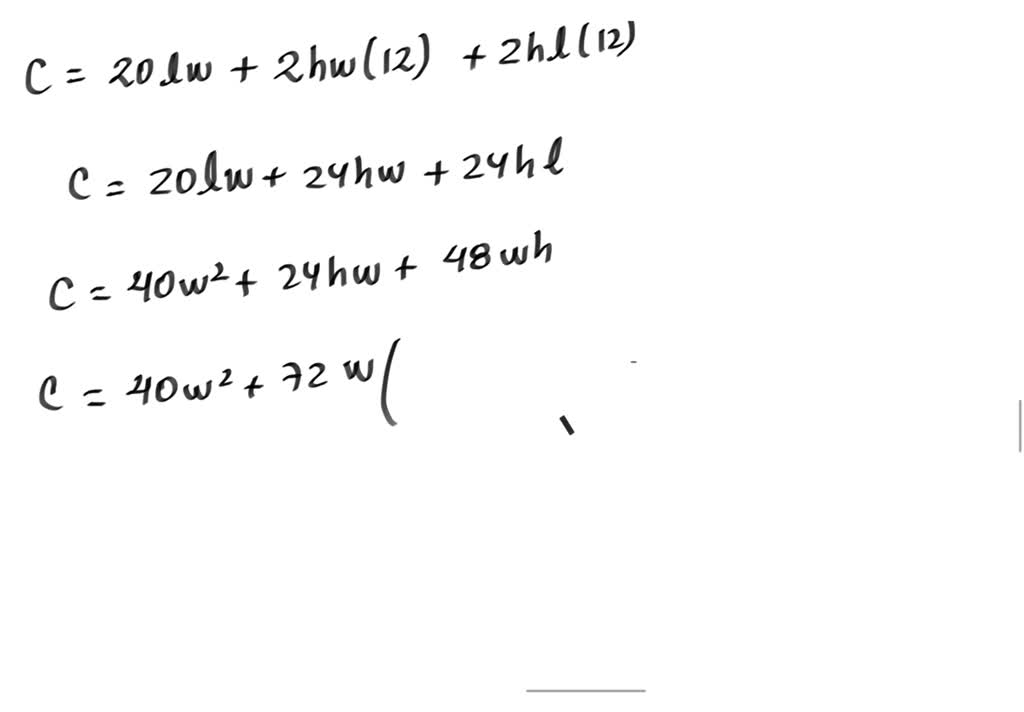 C = 20lw + 2hw(12) + 2hl(12)
C = 20lw + 24hw + 24hl
C = 40w² + 24hw + 48wh
C = 40w² + 72w(